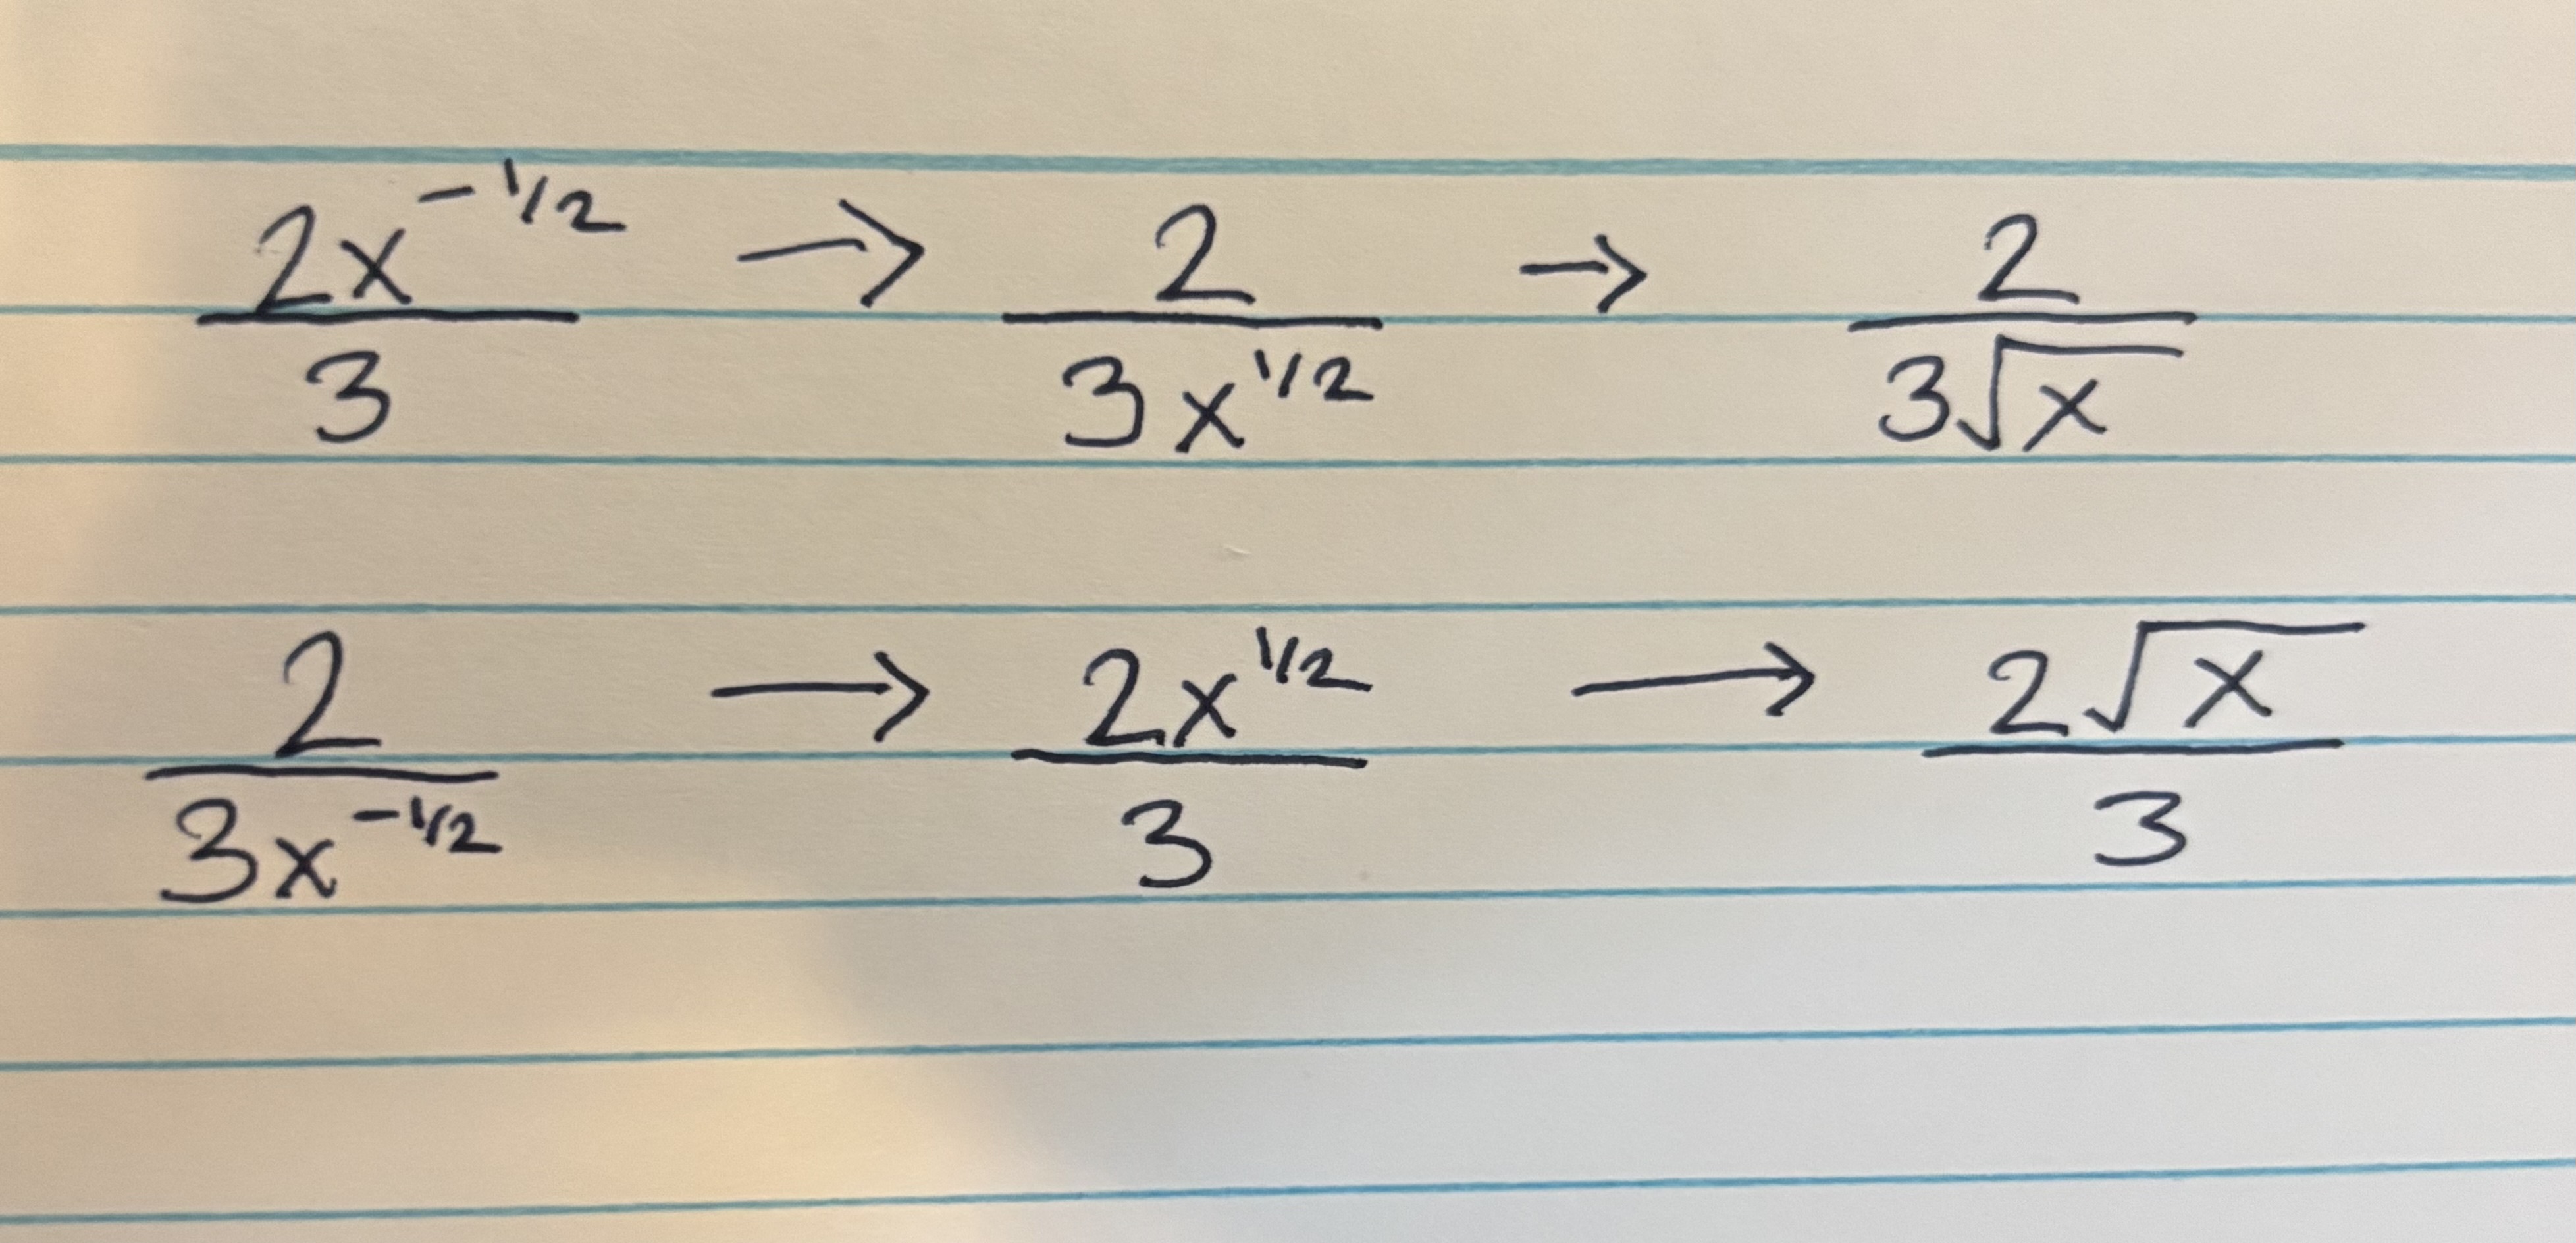 2x^(-1/2)/3 → 2/(3x^(1/2)) → 2/(3√x)
2/(3x^(-1/2)) → 2x^(1/2)/3 → 2√x/3